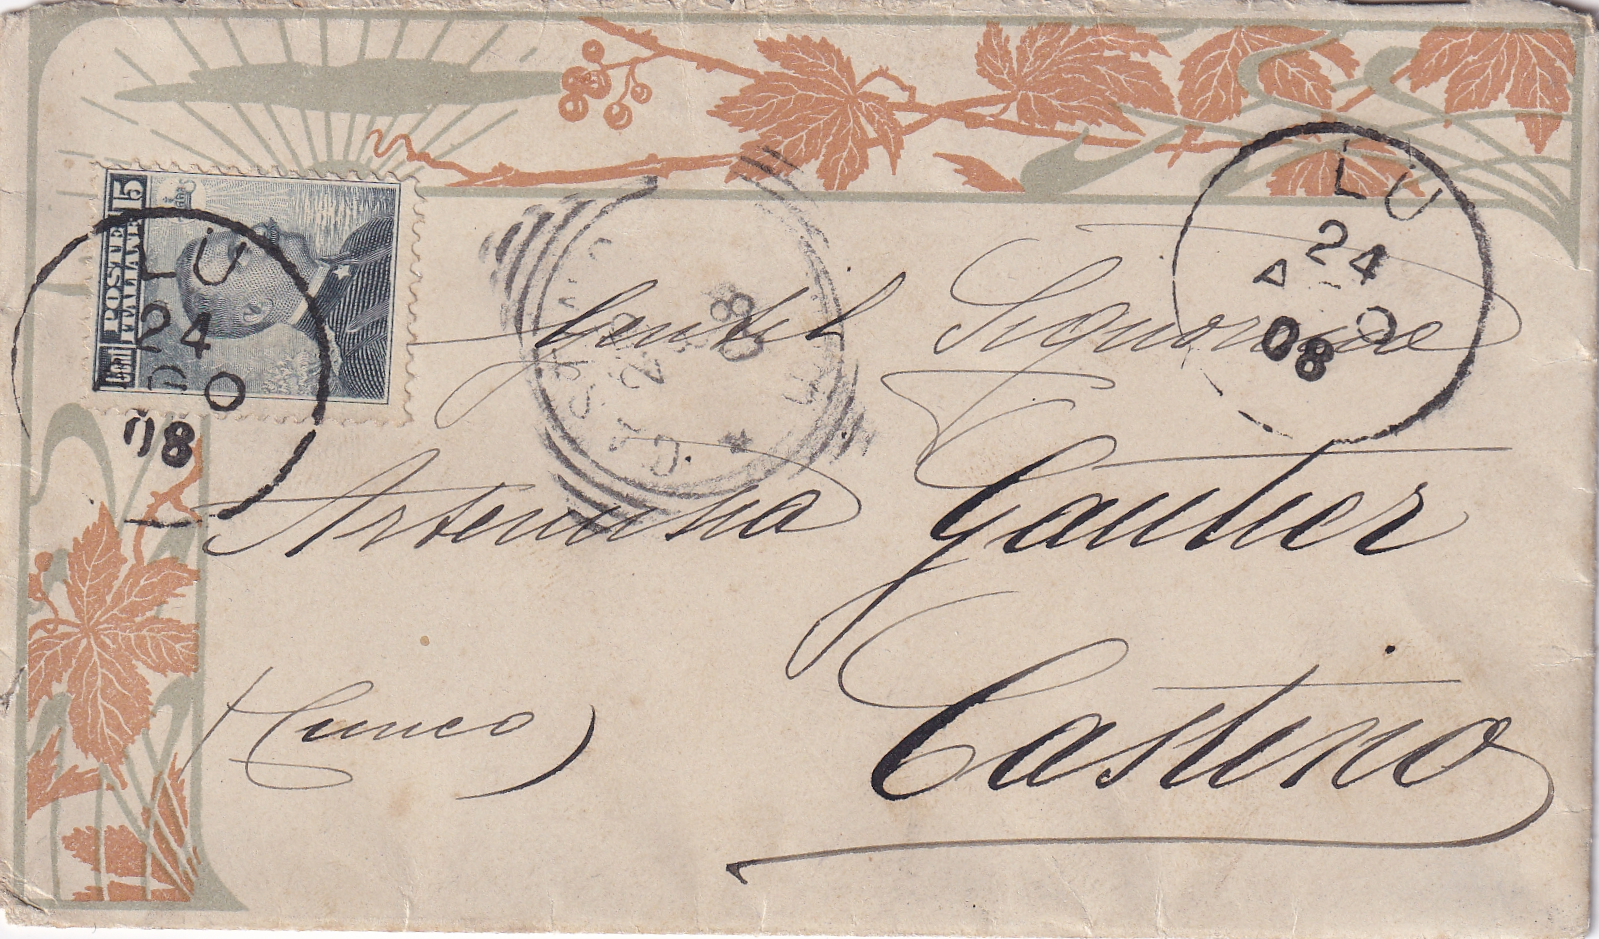 POSTE ITALIANE
Cent 15
LU
24
O
08
LU
24
A O
08
08
Gentil Signorina
Artemisia Gautier
Castino
(Cuneo)